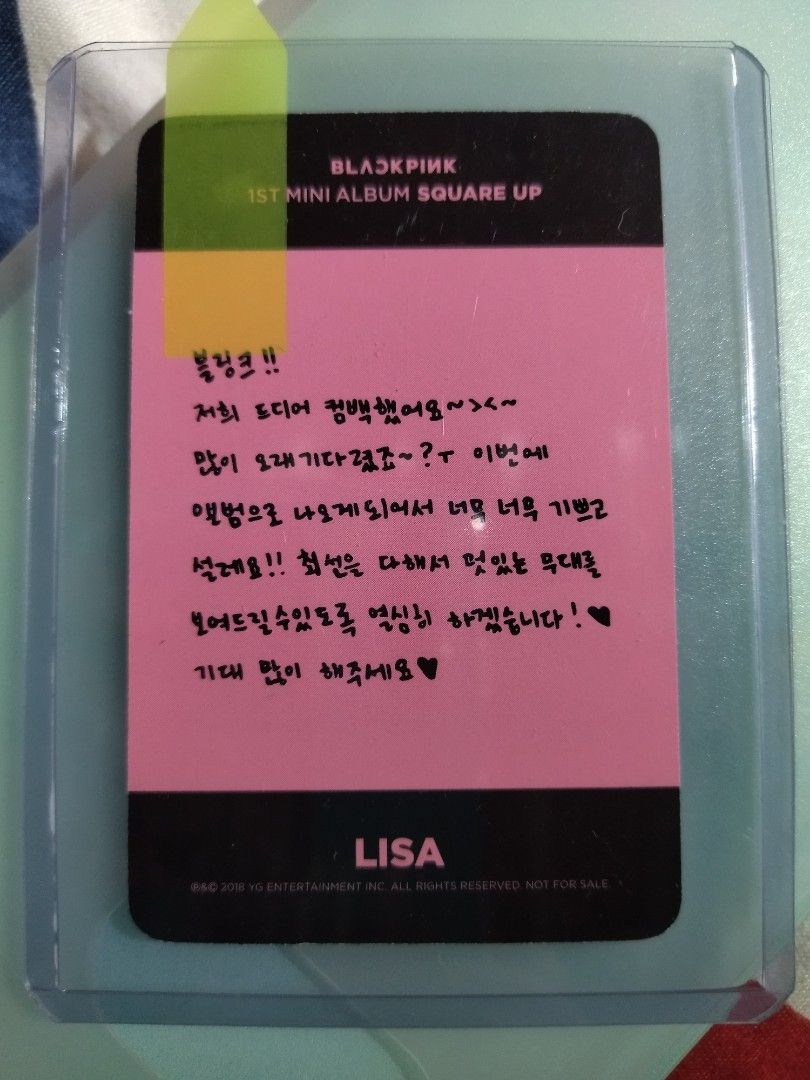 BLACKPINK
1ST MINI ALBUM SQUARE UP
블링크!!
저희 드디어 컴백했어요~><~
많이 오래기다렸죠~?ㅜ 이번에
앨범으로 나오게되어서 너무 너무 기쁘고
설레요!! 최선을 다해서 멋있는 무대를
보여드릴수있도록 열심히 하겠습니다!♥
기대 많이 해주세요♥
LISA
℗&© 2018 YG ENTERTAINMENT INC. ALL RIGHTS RESERVED. NOT FOR SALE.